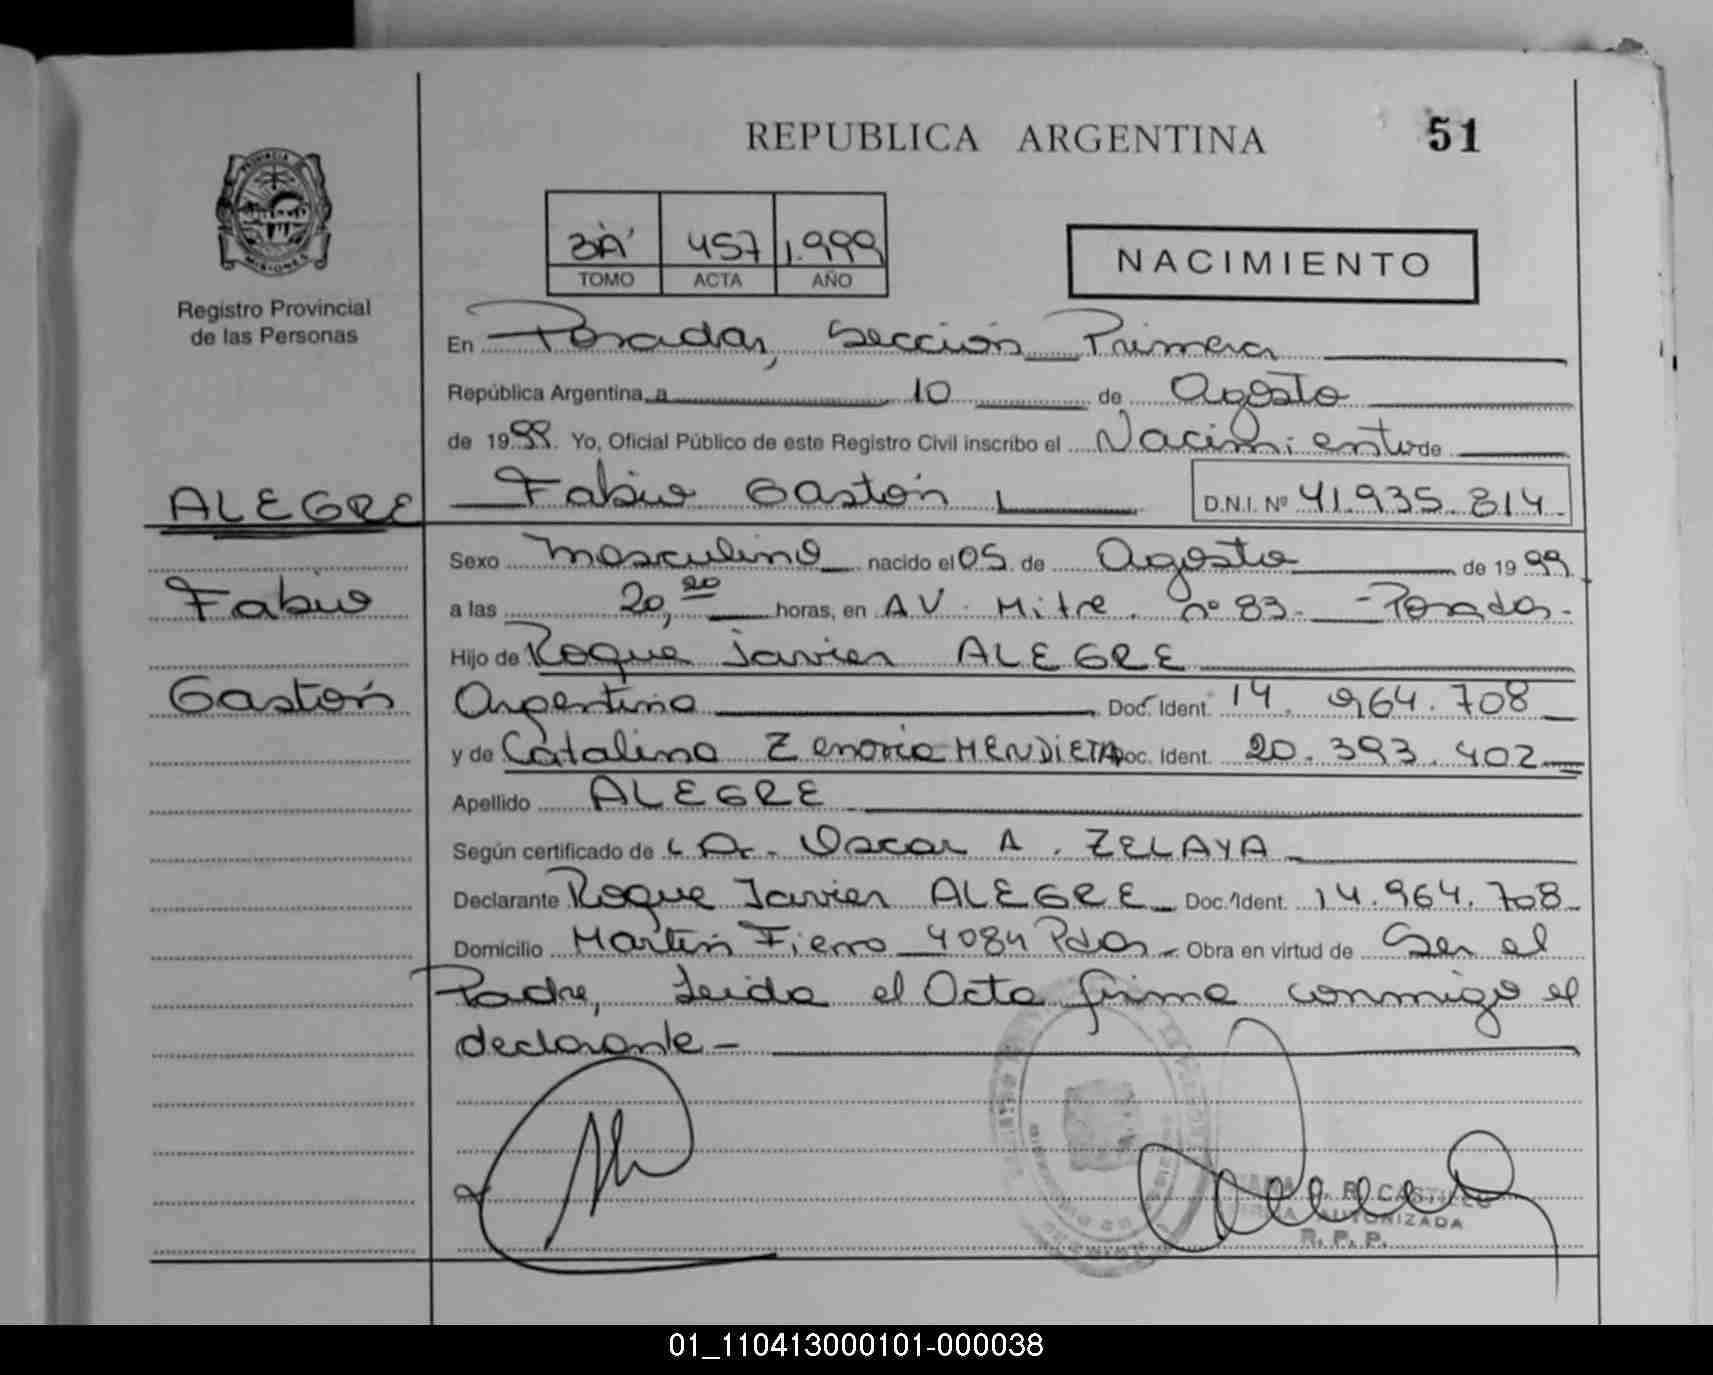 REPUBLICA ARGENTINA
51
PROVINCIA
MISIONES
Registro Provincial
de las Personas
3"A" 457 1.999
TOMO ACTA AÑO
NACIMIENTO
En Posadas, Sección Primera
República Argentina, a 10 de Agosto
de 1999. Yo, Oficial Público de este Registro Civil inscribo el Nacimiento de
ALEGRE
Fabio Gastón
D.N.I. Nº 41.935.814
Fabio
Gastón
Sexo masculino nacido el 05 de Agosto de 1999
a las 20,20 horas, en AV. Mitre. nº 83. - Posadas -
Hijo de Roque Javier ALEGRE
Argentino Doc. Ident. 14. 964.708
y de Catalina Zenovia MENDIETA Doc. Ident. 20.393.402
Apellido ALEGRE
Según certificado de Dr. Oscar A. ZELAYA
Declarante Roque Javier ALEGRE Doc. Ident. 14.964.708
Domicilio Martín Fierro 4084 Pdas - Obra en virtud de Ser el
Padre, Leida el Acta firma conmigo el
declarante -
R. CASTILLO
AUTORIZADA
R. P. P.
01_110413000101-000038